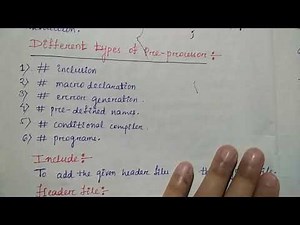 Different types of Pre-processor:-
1) # Inclusion
2) # macro declaration
3) # error generation.
4) # pre-defined names.
5) # conditional compiler
6) # programs.
Include:-
To add the given header files the file.
Header file:-